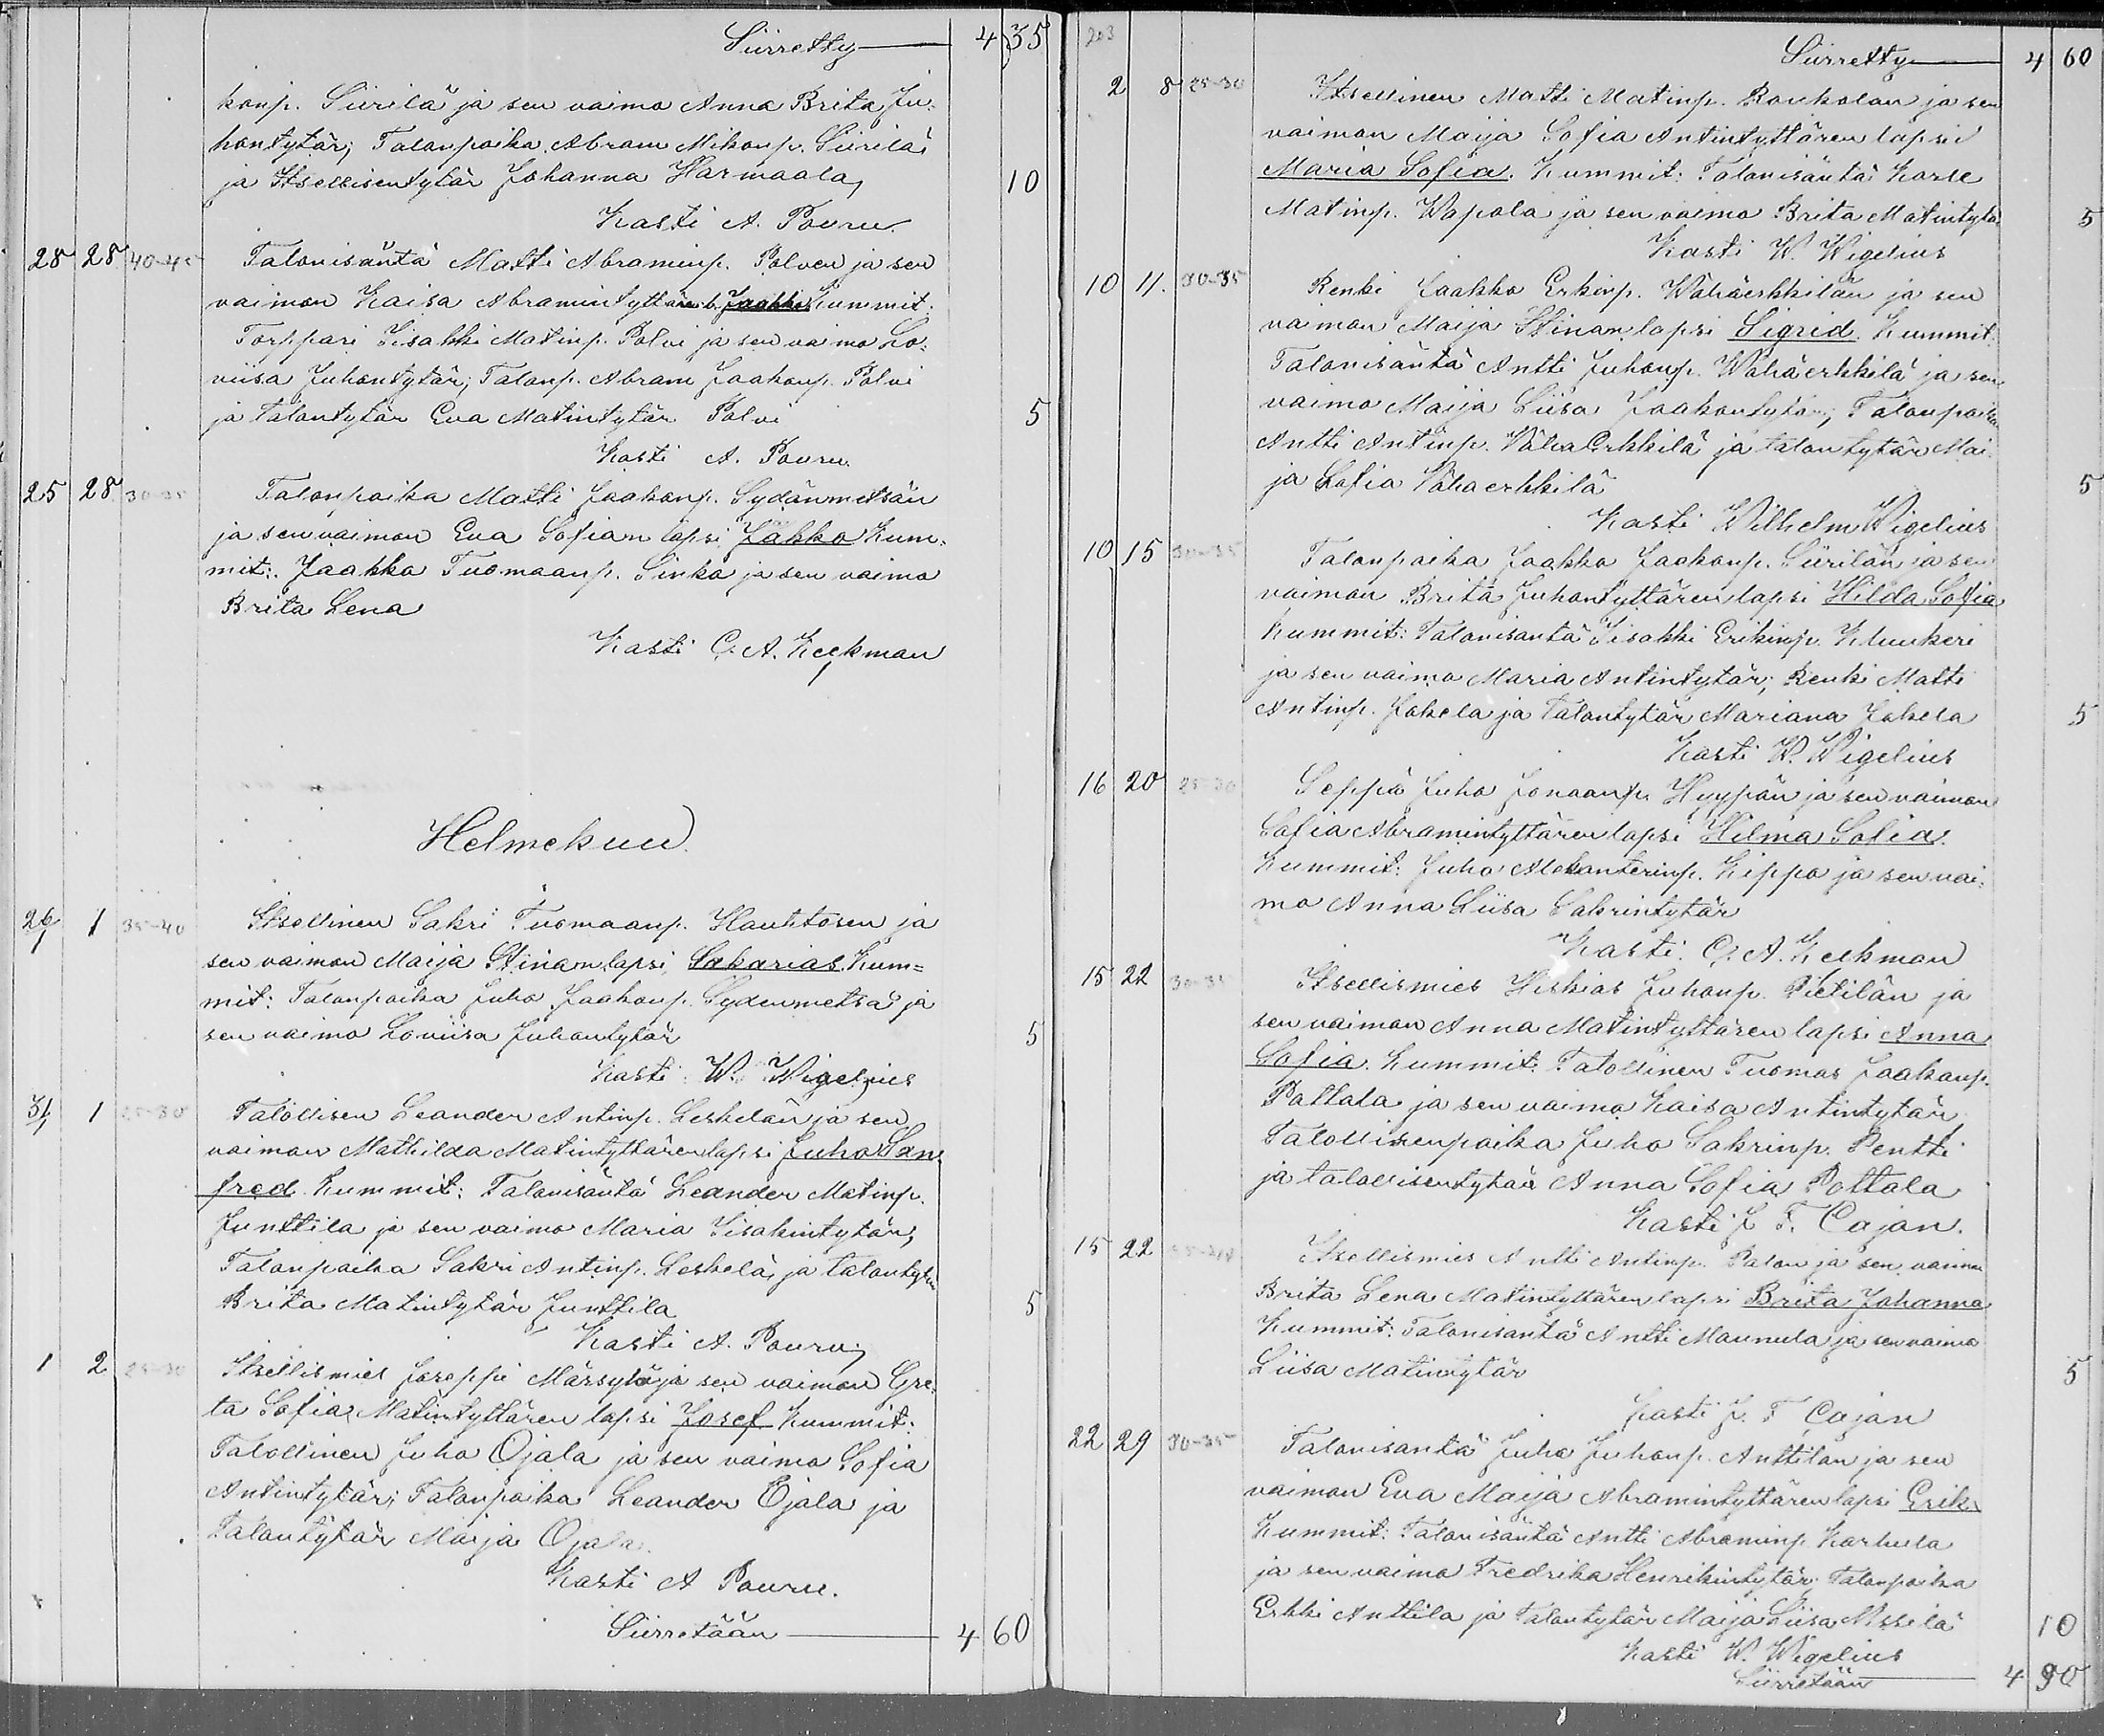 Siirretty 4 35
konp. Siirilä ja sen vaimo Anna Brita Ju-
hontytär; Talonpoika Abram Mikonp. Siirilä
ja Itsellisentytär Johanna Harmaala, 10
Kasti A. Pouru.
28 28 40-45 Talonisäntä Matti Abraminp. Polven ja sen
vaimon Kaisa Abramintyttären l. Jaakko Kummit:
Torppari Iisakki Matinp. Polvi ja sen vaimo Lo-
viisa Juhontytär; Talonp. Abram Jaakonp. Polvi
ja talontytär Eva Matintytär Polvi 5
Kasti A. Pouru.
25 28 30-35 Talonpoika Matti Jaakonp. Sydänmetsän
ja sen vaimon Eva Sofian lapsi Jakko Kum-
mit: Jaakko Tuomaanp. Sinko ja sen vaimo
Brita Lena
Kasti C. A. Keckman
Helmekuu
29/1 1 35-40 Itsellinen Sakri Tuomaanp. Hautitosen ja
sen vaimon Maija Stinan lapsi Sakarias. Kum=
mit: Talonpoika Juho Jaakonp. Sydenmetsä ja
sen vaimo Loviisa Juhontytär 5
Kasti W. Wigelius
31/1 1 25-30 Talollisen Leander Antinp. Leskelän ja sen
vaimon Mathilda Matintyttären lapsi Juho San-
fred. Kummit: Talonisäntä Leander Matinp.
Junttila ja sen vaimo Maria Iisakintytär,
Talonpoika Sakri Antinp. Leskelä, ja talontytär
Brita Matintytär Junttila 5
Kasti A. Pouru,
1 2 25-30 Itsellismies Joseppi Märsylä ja sen vaimon Gre-
ta Sofia Matintyttären lapsi Josef Kummit:
Talollinen Juho Ojala ja sen vaimo Sofia
Antintytär; Talonpoika Leander Ojala ja
Talontytär Maija Ojala.
Kasti A Pouru.
Siirretään 4 60
203
Siirretty 4 60
2 8 25-30 Itsellinen Matti Matinp. Roukolan ja sen
vaimon Maija Sofia Antintyttären lapsi
Maria Sofia. Kummit: Talonisäntä Kalle
Matinp. Wapola ja sen vaimo Brita Matintytär 5
Kasti W. Wigelius
10 11. 30-35 Renki Jaakko Erkinp. Wähäerkkilän ja sen
vaimon Maija Stinan lapsi Sigrid. Kummit:
Talonisäntä Antti Juhonp. Wähäerkkilä ja sen
vaimo Maija Liisa Jaakontytär; Talonpoika
Antti Antinp. Vähä Erkkilä ja talontytär Mai-
ja Sofia Vähaerkkilä 5
Kasti Wilhelm Wigelius
10 15 30-35 Talonpoika Jaakko Jaakonp. Siirilän ja sen
vaimon Brita Juhontyttären lapsi Hilda Sofia
Kummit: Talonisäntä Iisakki Erikinp. Klunkeri
ja sen vaimo Maria Antintytär; Renki Matti
Antinp. Jokela ja talontytär Mariana Jokela 5
Kasti W. Wigelius
16 20 25-30 Seppä Juho Jonaanp. Hyypän ja sen vaimon
Sofia Abramintyttären lapsi Hilma Sofia.
Kummit: Juho Aleksanterinp. Kippo ja sen vai-
mo Anna Liisa Sakrintytär
Kasti. C. A. Keckman
15 22 30-35 Itsellismies Hiskias Juhonp. Pietilän ja
sen vaimon Anna Matintyttären lapsi Anna
Sofia. Kummit: Talollinen Tuomas Jaakonp.
Pottala ja sen vaimo Kaisa Antintytär,
Talollisenpoika Juho Sakrinp. Pentti
ja talollisentytär Anna Sofia Pottala
Kasti J. F. Cajan.
15 22 Itsellismies Antti Antinp. Palon ja sen vaimon
Brita Lena Matintyttären lapsi Brita Johanna
Kummit: Talonisäntä Antti Maunula ja sen vaimo
Liisa Matintytär 5
Kasti J. F. Cajan
22 29 30-35 Talonisäntä Juho Juhonp. Anttilan ja sen
vaimon Eva Maija Abramintyttären lapsi Erik
Kummit: Talonisäntä Antti Abraminp. Karhula
ja sen vaimo Fredrika Henrikintytär; Talonpoika
Erkki Anttila ja Talontytär Maija Liisa 10
Kasti W. Wigelius
Siirretään 4 90